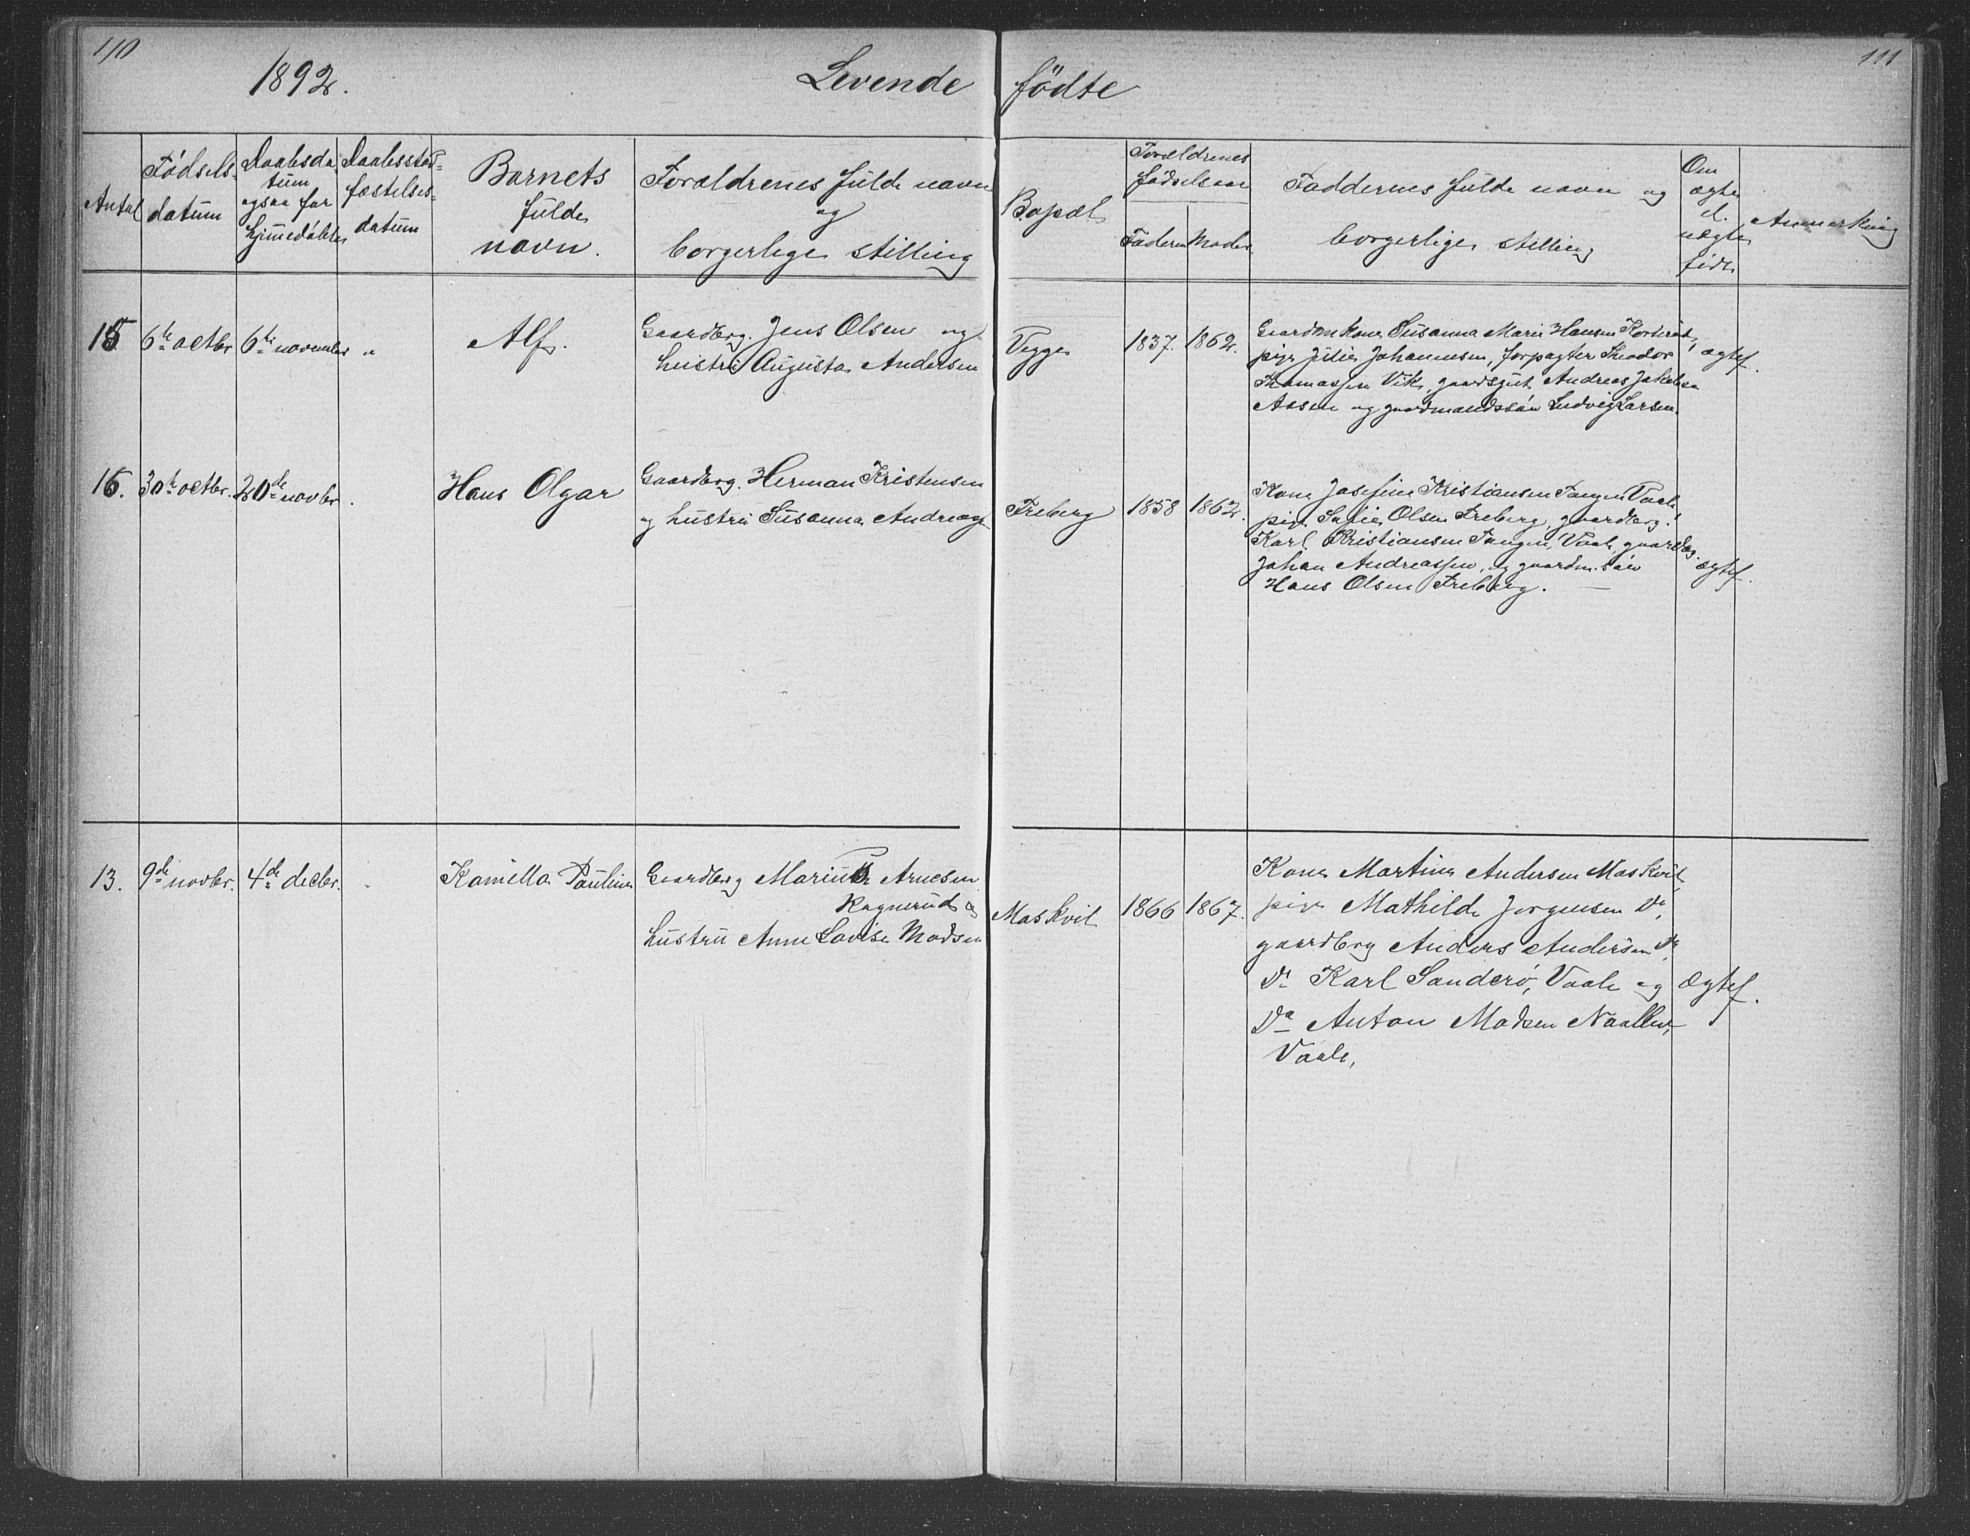 110
111
1892.
Levende fødte
Antal
Fødsels-
datum
Daabsda
tum
ogsaa for
hjemmedøbte
Daabsstad-
fæstelses-
datum
Barnets
fulde
navn.
Forældrenes fulde navn
og
borgerlige stilling
Bopæl
Forældrenes
fødselsaar
Faderen Moder.
Faddernes fulde navn og
borgerlige stilling
Om
ægte
el.
uægte
født
Anmærkning
15 6te octbr 6te november " Alf.
Gaardbrg. Jens Olsen og
hustru Augusta Andersen
Vegge 1837. 1862.
Gaardm kone Susanna Marie Hansen
pige Julie Johannesen, forpagter Theodor
Thomassen Vik, gaardsgut Andreas Jakobsen
Aasen og gaardmandssøn Ludvig Larsen.
ægtef.
16. 30te octbr. 20de novbr. Hans Olgar
Gaardbrg. Herman Kristensen
og hustru Susanna
Freberg 1858 1862.
Kone Josefine Kristiansen Tangen Vaale,
pige Sofie Olsen Freberg, gaardbrg.
Karl Kristiansen Tangen, Vaale, gaardbrg.
Johan Andreassen, og gaardm. søn
Hans Olsen Freberg.
ægtef.
13. 9de novbr. 4de decbr. Kamilla Pauline
Gaardbrg Marius Arnesen
Ragnerud og
hustru Anne Lovise Madsen
Maskvil 1866 1867.
Kone Martine Andersen Maskvil,
pige Mathilde Jørgensen Do,
gaardbrg Anders Andersen Do,
Do Karl Sanderø, Vaale og
Do Anton Madsen
Vaale,
ægtef.